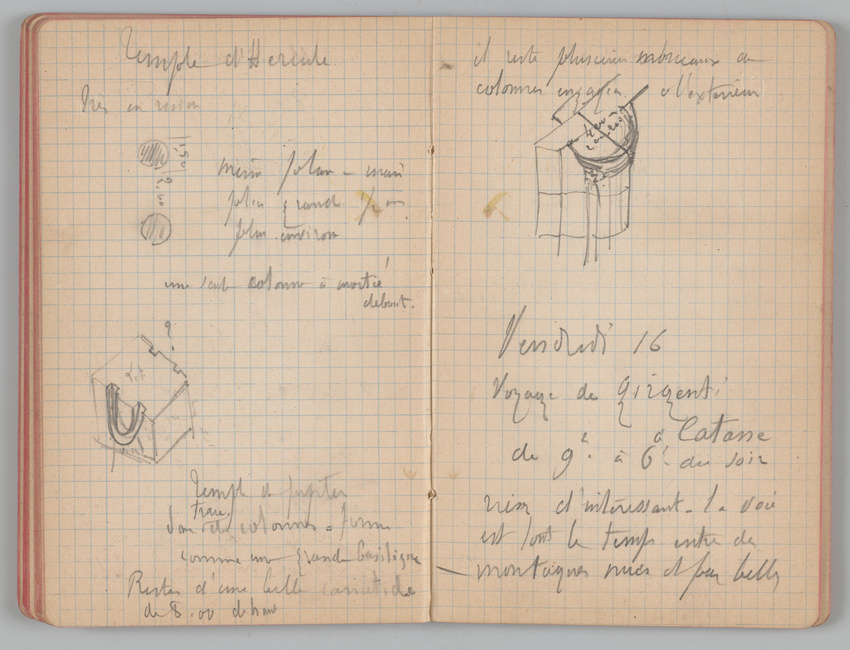 Temple d'Hercule
Très en ruines
1,50
2,00
même plan - mais
plus grand
plus environ
une seule colonne à moitié
debout.
?
Temple de Jupiter
trav.
colonnes - forme
comme une grande basilique
Restes d'une belle cariatide
de 8.00 de haut
il reste plusieurs morceaux de
colonnes engagées à l'extérieur
Vendredi 16
Voyage de Girgenti
à Catane
de 9h. à 6h. du soir
rien d'intéressant - la voie
est tout le temps entre des
montagnes nues et peu belles